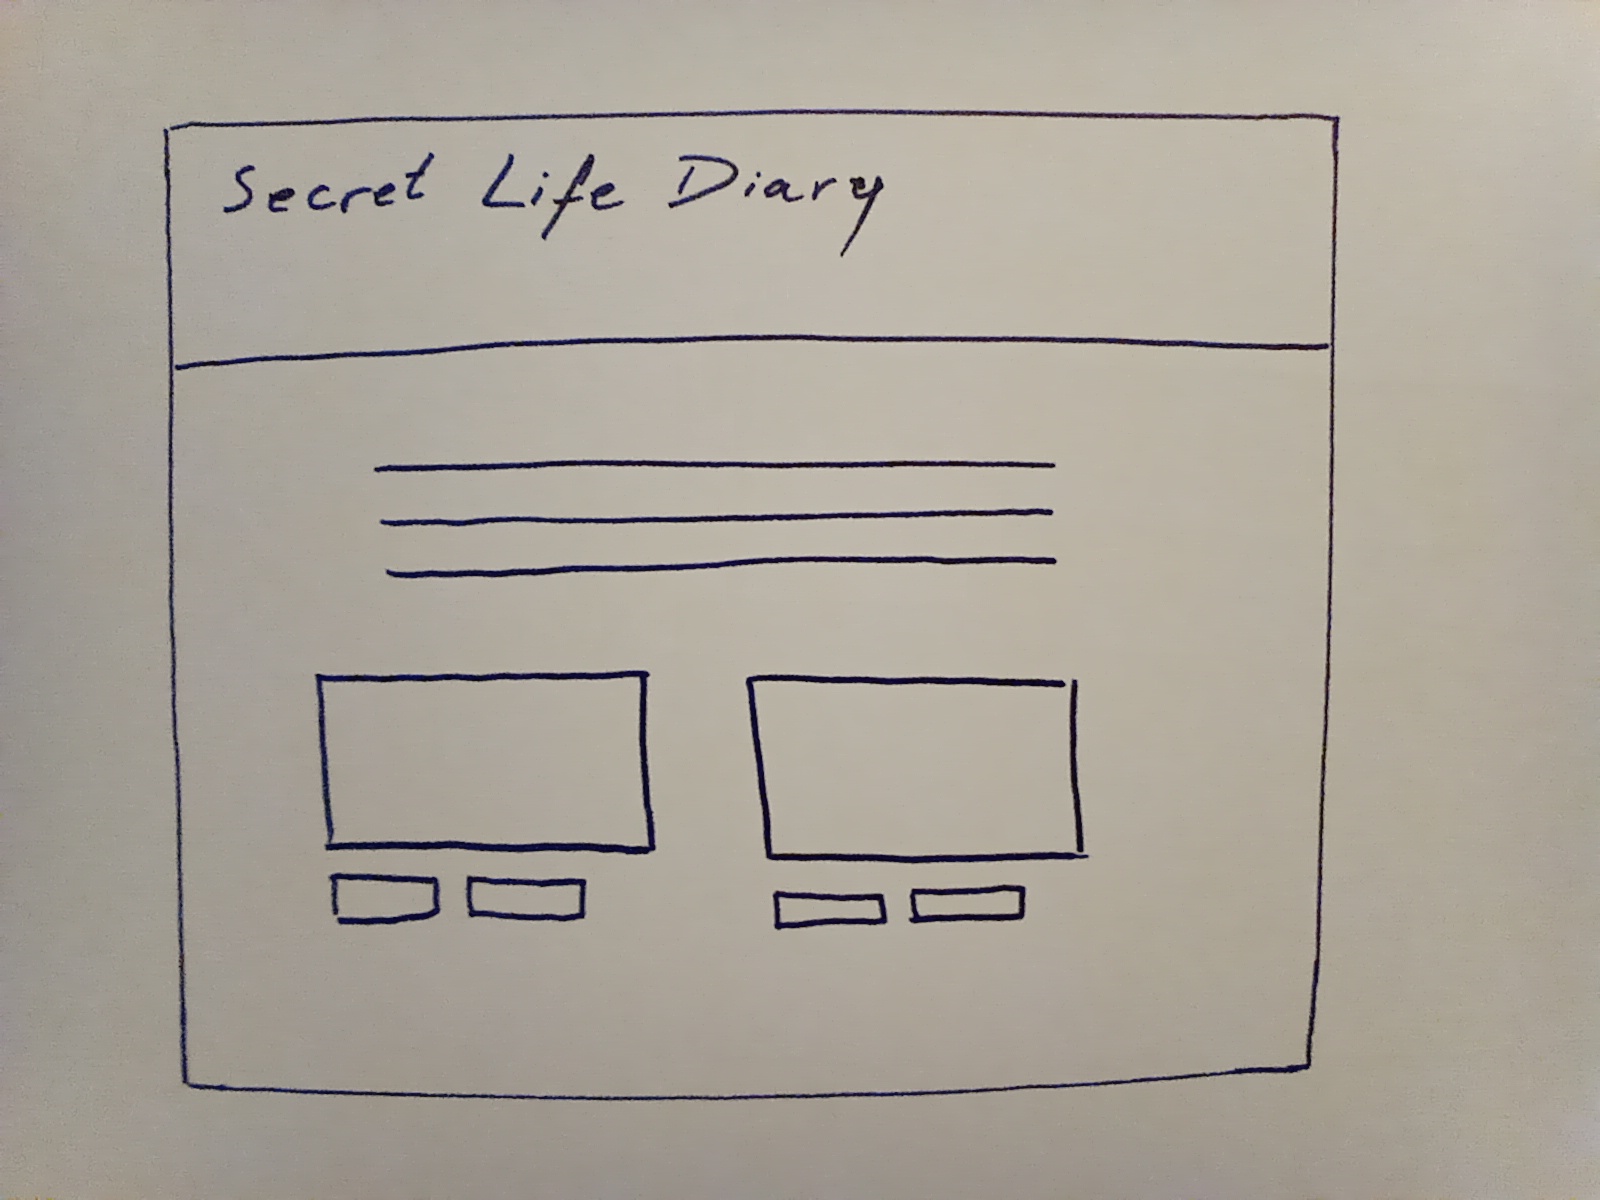 Secret Life Diary